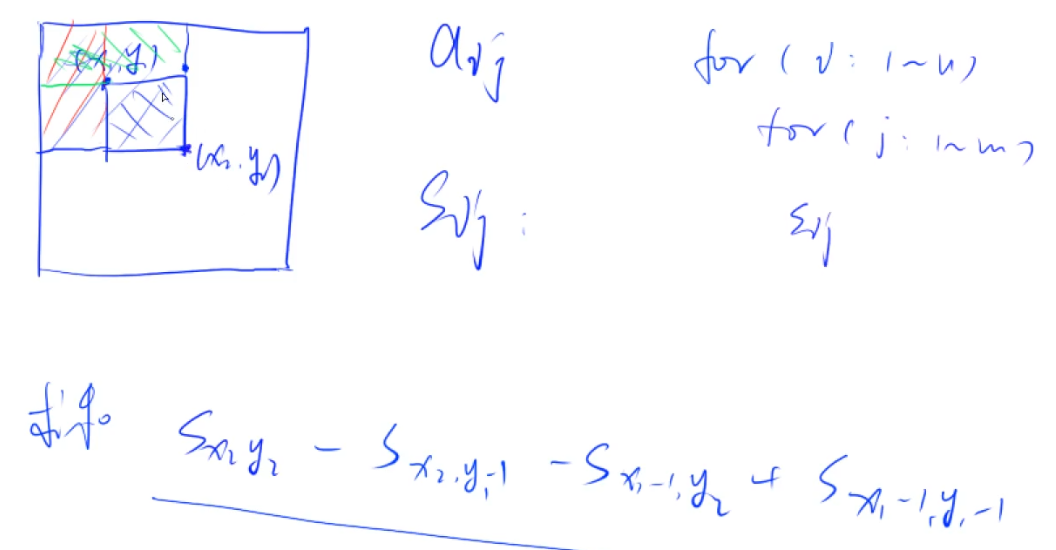 (x₁, y₁)
(x₂, y₂)
aij
for ( i : 1~n)
for ( j : 1~m)
Sij :
Sij
Sx₂y₂ - Sx₂,y₁-1 - Sx₁-1,y₂ + Sx₁-1,y₁-1